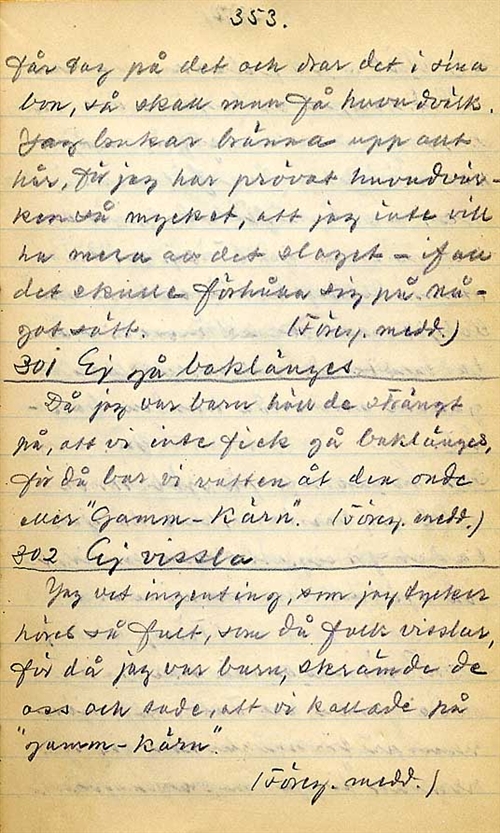 353.
får tag på det och drar det i sina
bon, så skall man få huvudvärk.
Jag brukar bränna upp mitt
hår, för jag har prövat huvudvär-
ken så mycket, att jag inte vill
ha mera av det slaget - ifall
det skulle förhålla sig på nå-
got sätt. (Föreg. medd.)
301 Ej gå baklänges
Då jag var barn höll de strängt
på, att vi inte fick gå baklänges,
för då bar vi vatten åt den onde
eller "Gamm-Kärn". (Föreg. medd.)
302 Ej vissla
Jag vet ingenting, som jag tycker
höres så fult, som då folk visslar,
för då jag var barn, skrämde de
oss och sade, att vi kallade på
"gamm-kärn".
(Föreg. medd.)